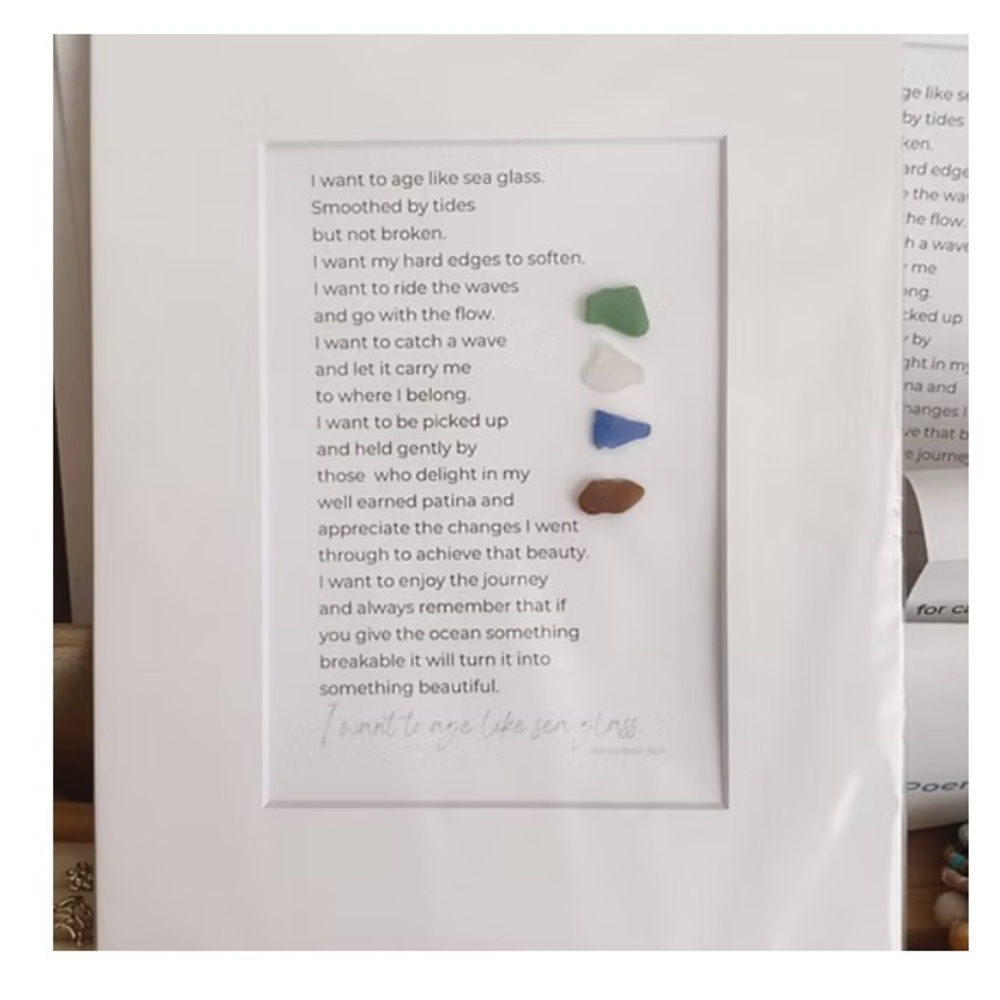 I want to age like sea glass.
Smoothed by tides
but not broken.
I want my hard edges to soften.
I want to ride the waves
and go with the flow.
I want to catch a wave
and let it carry me
to where I belong.
I want to be picked up
and held gently by
those who delight in my
well earned patina and
appreciate the changes I went
through to achieve that beauty.
I want to enjoy the journey
and always remember that if
you give the ocean something
breakable it will turn it into
something beautiful.
I want to age like sea glass.
ge like se
by tides
ken.
ard edge
the wa
he flow.
h a wave
me
ong.
cked up
by
ght in my
na and
hanges I
ve that b
e journey
for ca
poem